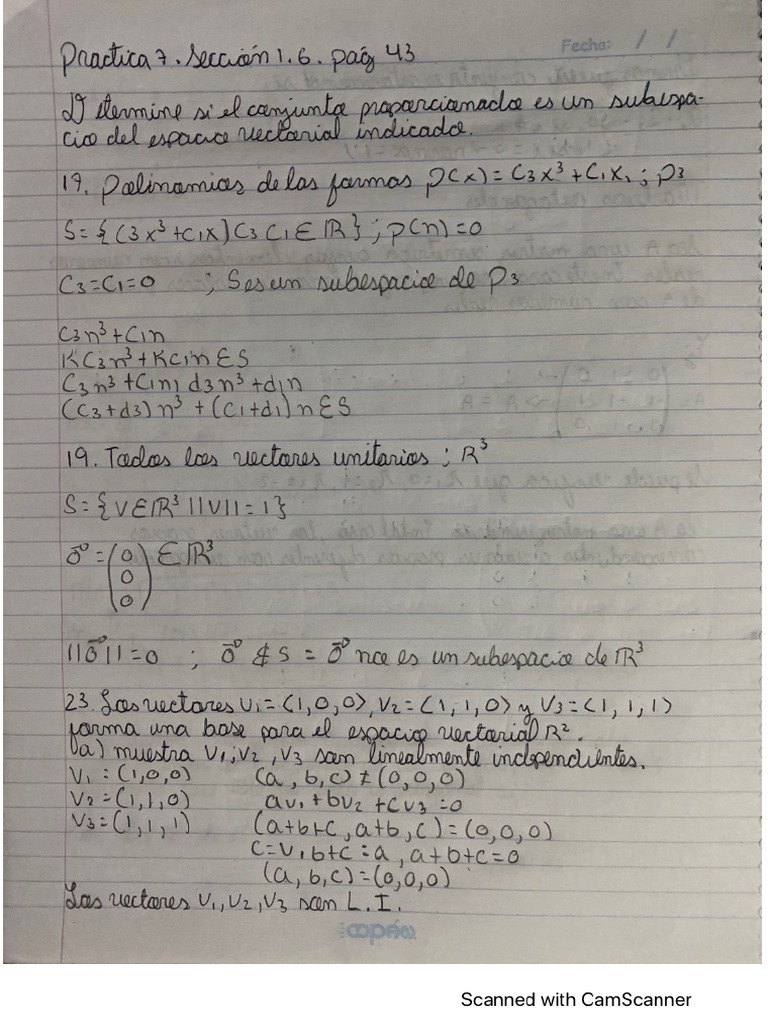 Practica 7. Sección 1.6. pag 43
Fecha: / /
Determine si el conjunto proporcionado es un subespa-
cio del espacio vectorial indicado.
17. Polinomios de las formas p(x) = C3x³ + C1x, ; p3
S = { (3x³ + C1x) C3 C1 E IR } ; p(n) = 0
C3 = C1 = 0 ; S es un subespacio de P3
C3n³ + C1n
KC3n³ + KC1n E S
C3n³ + C1n, d3n³ + d1n
(C3 + d3) n³ + (C1 + d1) n E S
19. Todos los vectores unitarios ; R³
S = { V E IR³ ||V|| = 1 }
0 = (0) E IR³
0
0
||0|| = 0 ; 0 ∉ S = 0 no es un subespacio de IR³
23. Los vectores V1 = <1, 0, 0>, V2 = <1, 1, 0> y V3 = <1, 1, 1>
forma una base para el espacio vectorial R².
a) muestra V1, V2, V3 son linealmente independientes.
V1 = (1, 0, 0) (a, b, c) ≠ (0, 0, 0)
V2 = (1, 1, 0) aV1 + bV2 + cV3 = 0
V3 = (1, 1, 1) (a+b+c, a+b, c) = (0, 0, 0)
c = v, b+c = a, a+b+c = 0
(a, b, c) = (0, 0, 0)
Los vectores V1, V2, V3 son L.I.
copán
Scanned with CamScanner